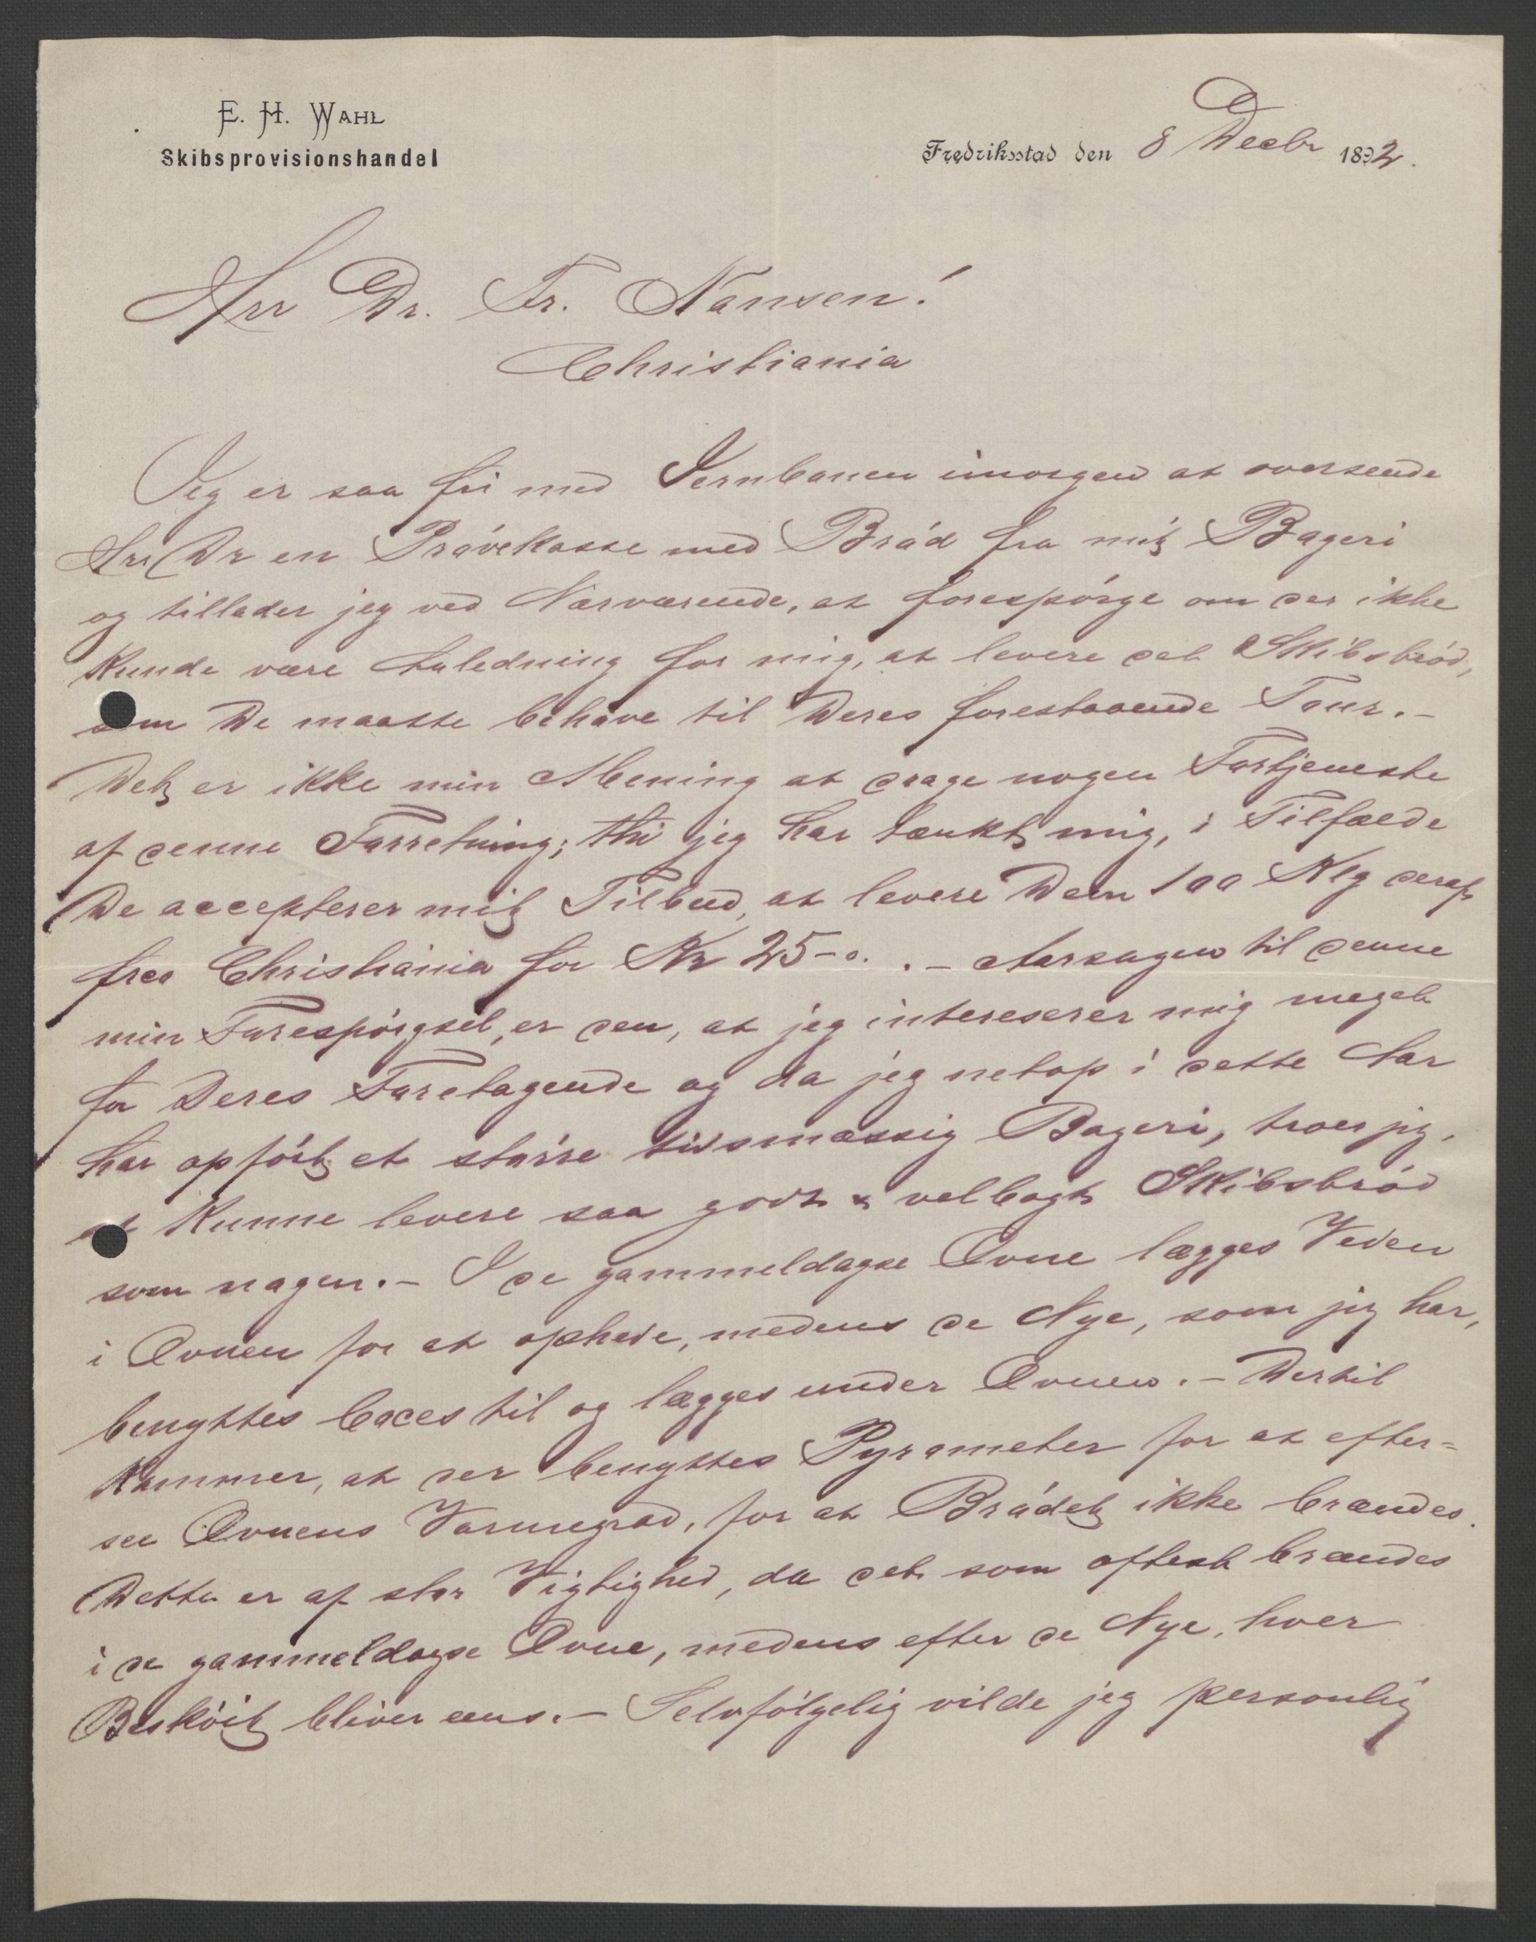 E. H. WAHL
Skibsprovisionshandel
Fredriksstad den 8 Decbr 1892.
Hrr Dr. Fr. Nansen!
Christiania
Jeg er saa fri med Jernbanen imorgen at oversende
Hrr Dr en Prövekasse med Bröd fra mit Bageri
og tillader jeg ved Nærværende, at forespörge om der ikke
kunde være Anledning for mig, at levere det Skibsbröd,
som De maatte behøve til Deres forestaaende Tour.-
Det er ikke min Mening at drage nogen Fortjeneste
af denne Forretning; thi jeg har tænkt mig, i Tilfælde
De accepterer mit Tilbud, at levere Dem 100 Klg deraf
frco Christiania for Kr 25-0. .- Aarsagen til denne
min Forespörgsel, er den, at jeg intereserer mig meget
for Deres Foretagende og da jeg netop i dette Aar
har opfört et större tidsmæssig Bageri, troer jeg,
at kunne levere saa godt & velbagt Skibsbröd
som nogen.- I de gammeldagse Ovne lægges Veden
i Ovnen for at ophede, medens de Nye, som jeg har,
benyttes Coces til og lægges under Ovnen.- Dertil
kommer, at der benyttes Pyrometer for at efter=
see Ovnens Varmegrad, for at Brödet ikke brændes.
Dette er af stor Vigtighed, da det som oftest brændes
i de gammeldagse Ovne, medens efter de Nye, hver
Besköit bliver eens.- Selvfölgelig vilde jeg personlig